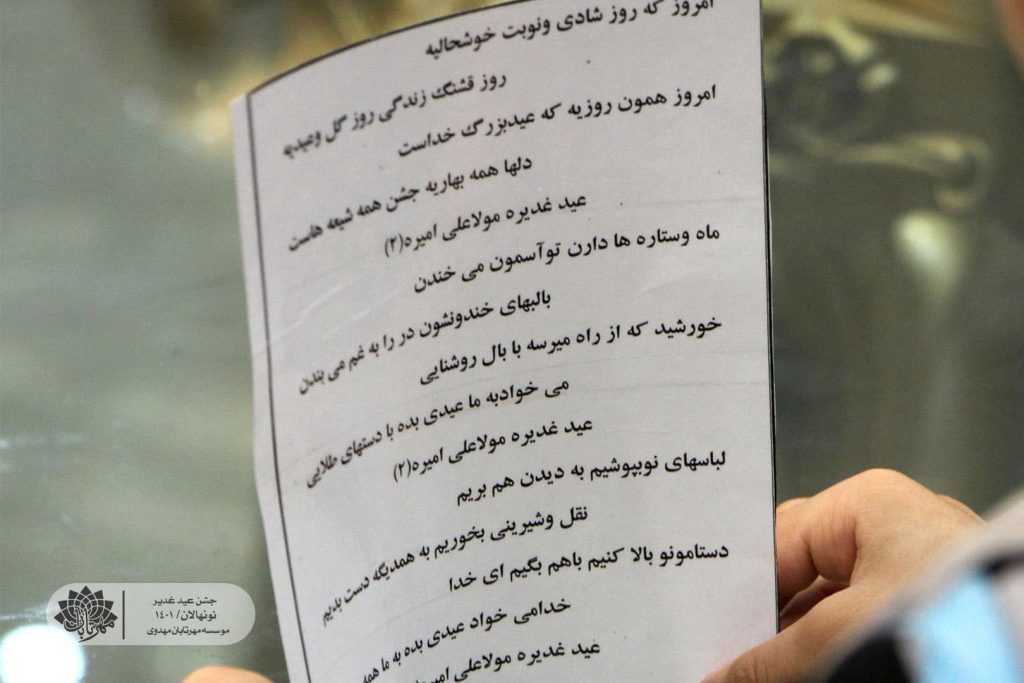 امروز که روز شادی ونوبت خوشحالیه
روز قشنگ زندگی روز گل وعیدیه
امروز همون روزیه که عیدبزرگ خداست
دلها همه بهاریه جشن همه شیعه هاست
عید غدیره مولاعلی امیره(۲)
ماه وستاره ها دارن توآسمون می خندن
بالبهای خندونشون در را به غم می بندن
خورشید که از راه میرسه با بال روشنایی
می خوادبه ما عیدی بده با دستهای طلایی
عید غدیره مولاعلی امیره(۲)
لباسهای نوبپوشیم به دیدن هم بریم
نقل وشیرینی بخوریم به همدیگه دست بدیم
دستامونو بالا کنیم باهم بگیم ای خدا
خدامی خواد عیدی بده به ما همه
عید غدیره مولاعلی امیره(۲)
جشن عید غدیر
نونهالان/ ۱۴۰۱
موسسه مهرتابان مهدوی
مهرتابان